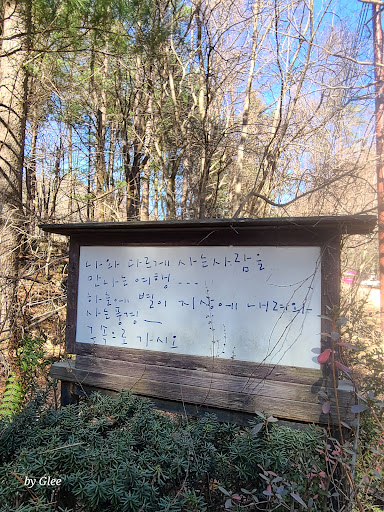 나와 다르게 사는 사람을
만나는 여행...
하늘에 별이 지상에 내려와
사는 풍경
by Glee